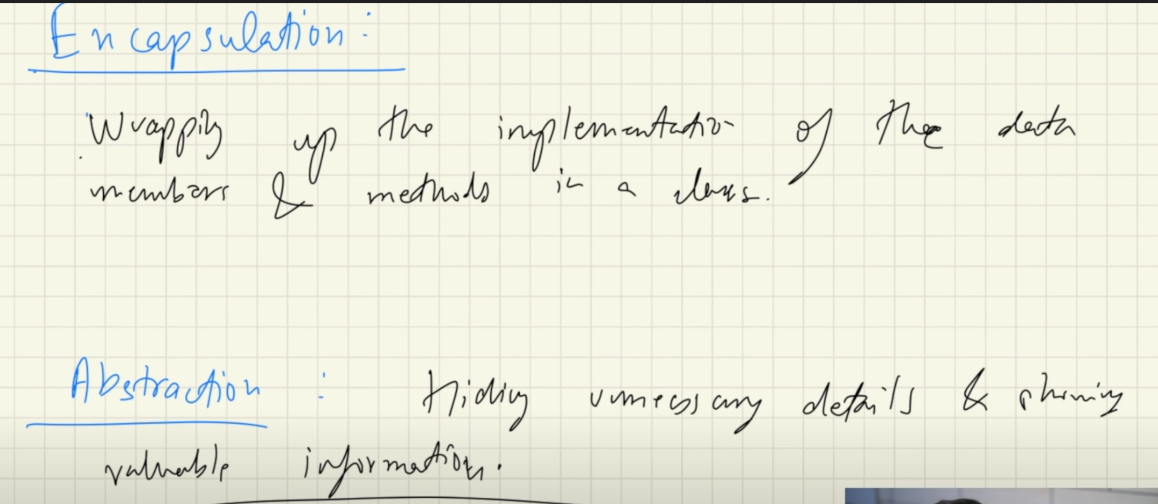 Encapsulation:
Wrapping up the implementation of the data
members & methods in a class.
Abstraction : Hiding unnecessary details & showing
valuable information.